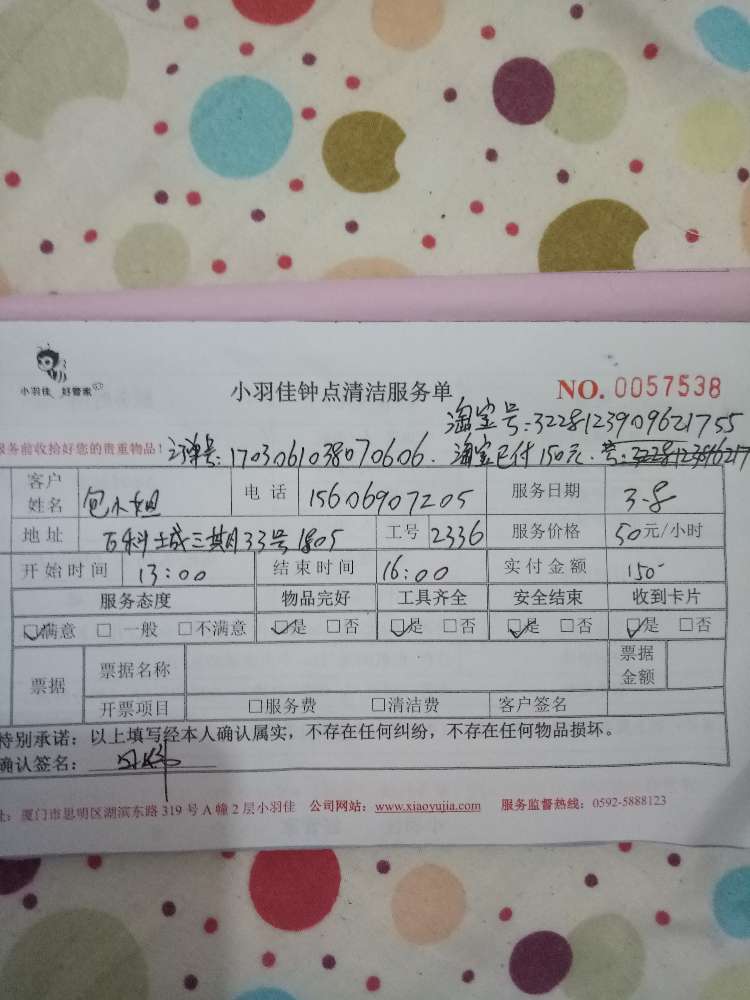 小羽佳 好管家
小羽佳钟点清洁服务单
NO. 0057538
淘宝号:3228123909621755
服务前收拾好您的贵重物品! 订单号:1703061038070606. 淘宝已付150元.
客户姓名 包小姐 电话 15606907205 服务日期 3-8
地址 万科城三期33号1805 工号 2336 服务价格 50元/小时
开始时间 13:00 结束时间 16:00 实付金额 150-
服务态度 物品完好 工具齐全 安全结束 收到卡片
☑满意 □一般 □不满意 ☑是 □否 ☑是 □否 ☑是 □否 ☑是 □否
票据 票据名称 票据金额
开票项目 □服务费 □清洁费 客户签名
特别承诺:以上填写经本人确认属实,不存在任何纠纷,不存在任何物品损坏。
确认签名:
址:厦门市思明区湖滨东路319号A幢2层小羽佳 公司网站:www.xiaoyujia.com 服务监督热线:0592-5888123